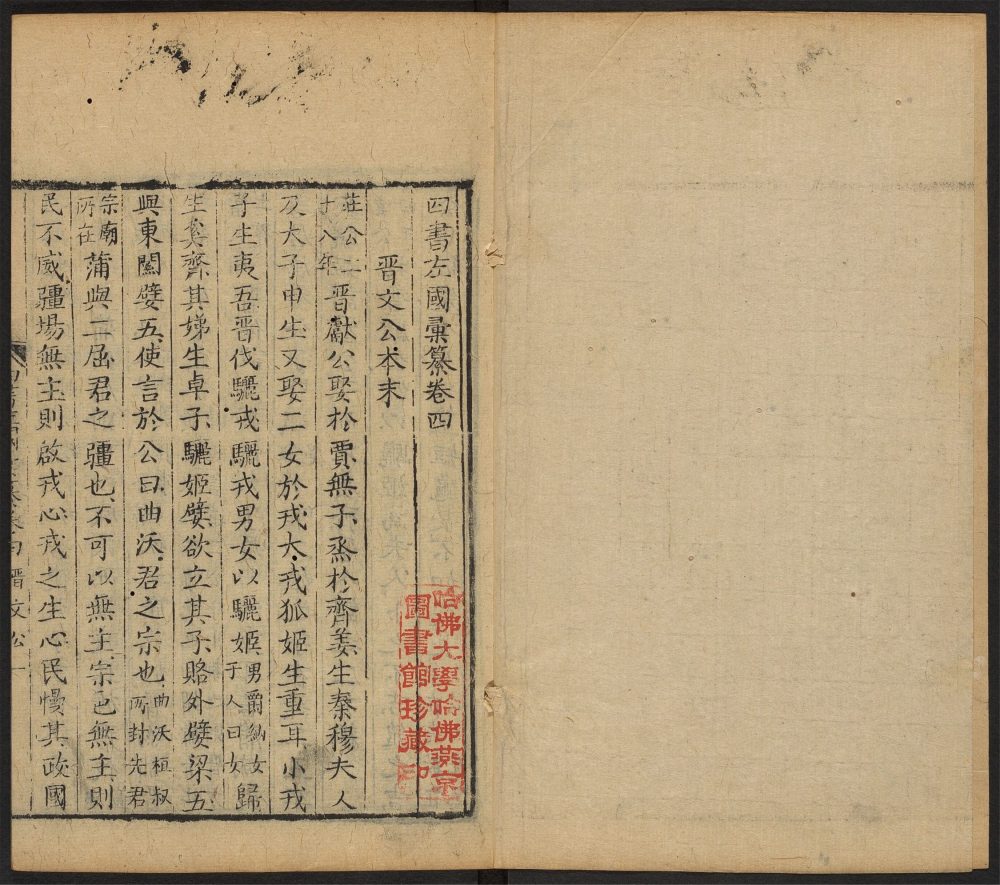 四書左國彙纂卷四
晋文公本末
莊公二十八年晋獻公娶於賈無子烝於齊姜生秦穆夫人
及大子申生又娶二女於戎大戎狐姬生重耳小戎
子生夷吾晋伐驪戎驪戎男女以驪姬男爵納女于人曰女歸
生奚齊其娣生卓子驪姬嬖欲立其子賂外嬖梁五
與東關嬖五使言於公曰曲沃君之宗也曲沃桓叔所封先君
宗廟所在蒲與二屈君之疆也不可以無主宗邑無主則
民不威疆場無主則啟戎心戎之生心民慢其政國
晋文公 一
哈佛大學哈佛燕京
圖書館珍藏印